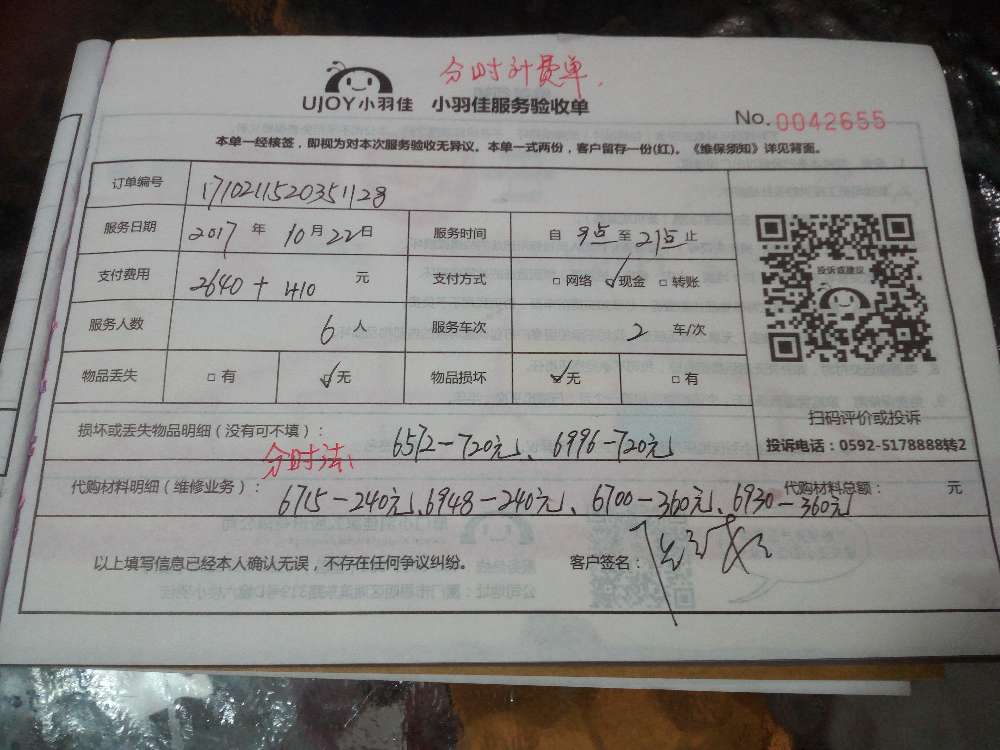 分时计费单.
UJOY小羽佳 小羽佳服务验收单
No.0042655
本单一经核签，即视为对本次服务验收无异议。本单一式两份，客户留存一份(红)。《维保须知》详见背面。
订单编号 1710211520351128
服务日期 2017 年 10 月 22 日 服务时间 自 9点 至 21点 止
支付费用 2640 + 410 元 支付方式 □ 网络 ☑ 现金 □ 转账
服务人数 6 人 服务车次 2 车/次
物品丢失 □ 有 ☑ 无 物品损坏 ☑ 无 □ 有
投诉或建议
扫码评价或投诉
投诉电话：0592-5178888转2
损坏或丢失物品明细（没有可不填）： 6572-720元、6996-720元
分时法：
代购材料明细（维修业务）： 6715-240元、6948-240元、6700-360元、6930-360元 代购材料总额： 元
以上填写信息已经本人确认无误，不存在任何争议纠纷。 客户签名：